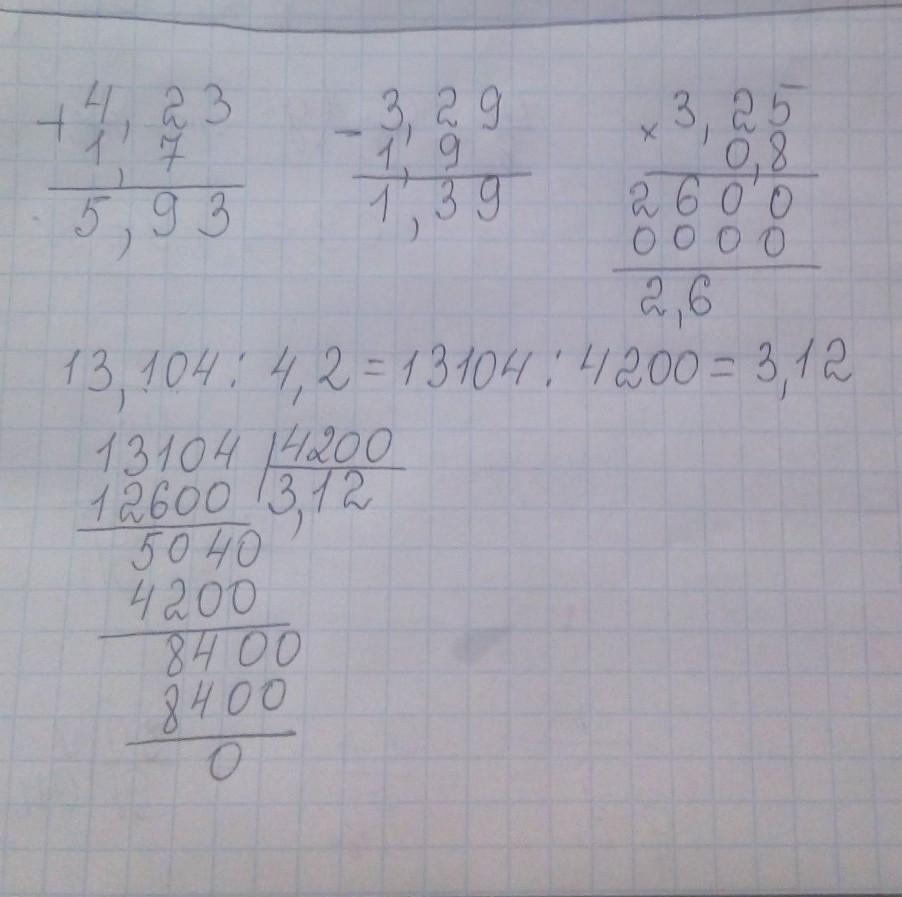 + 4,23 - 3,29 × 3,25
1,7 1,9 0,8
5,93 1,39 2600
0000
2,6
13,104 : 4,2 = 13104 : 4200 = 3,12
13104 4200
12600 3,12
5040
4200
8400
8400
0